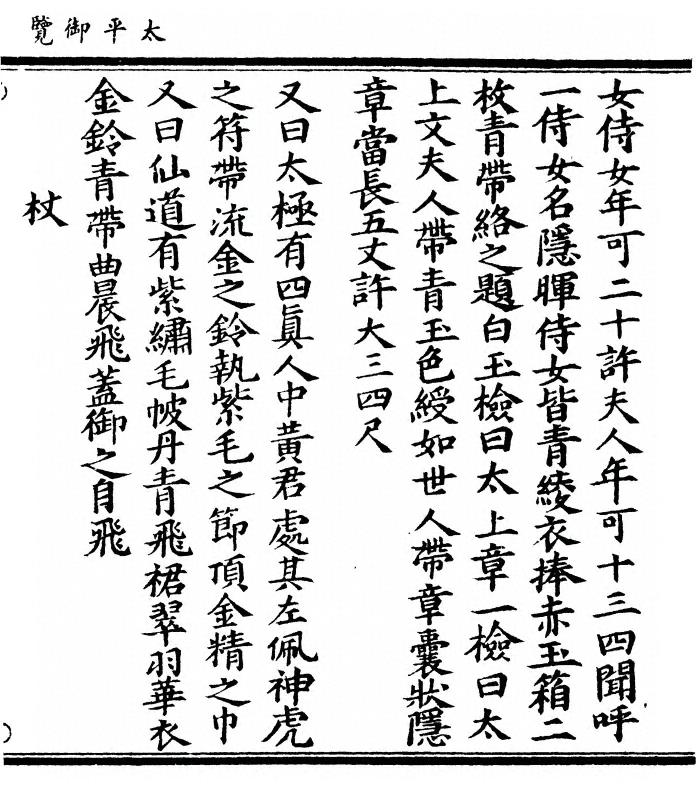 太平御覽
女侍女年可二十許夫人年可十三四聞呼
一侍女名隱暉侍女皆青綾衣捧赤玉箱二
枚青帶絡之題白玉檢曰太上章一檢曰太
上文夫人帶青玉色綬如世人帶章囊狀隱
章當長五丈許大三四尺
又曰太極有四眞人中黃君處其左佩神虎
之符帶流金之鈴執紫毛之節頂金精之巾
又曰仙道有紫繡毛帔丹青飛裙翠羽華衣
金鈴青帶曲晨飛蓋御之自飛
杖